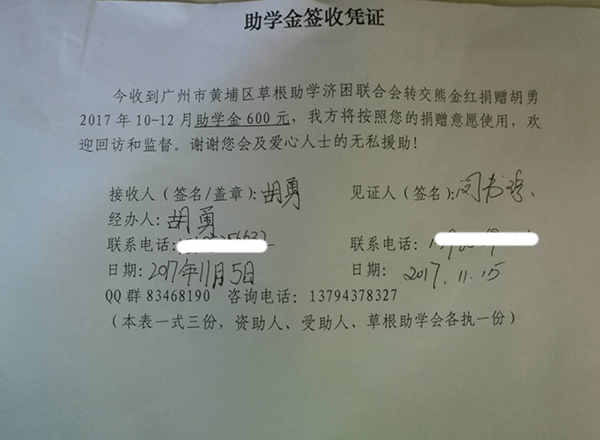 助学金签收凭证
今收到广州市黄埔区草根助学济困联合会转交熊金红捐赠胡勇
2017年10-12月助学金600元，我方将按照您的捐赠意愿使用，欢
迎回访和监督。谢谢您会及爱心人士的无私援助！
接收人（签名/盖章）：胡勇 见证人（签名）：闵书
经办人：胡勇
联系电话： 联系电话：
日期：2017年11月5日 日期：2017.11.15
QQ群83468190 咨询电话：13794378327
（本表一式三份，资助人、受助人、草根助学会各执一份）